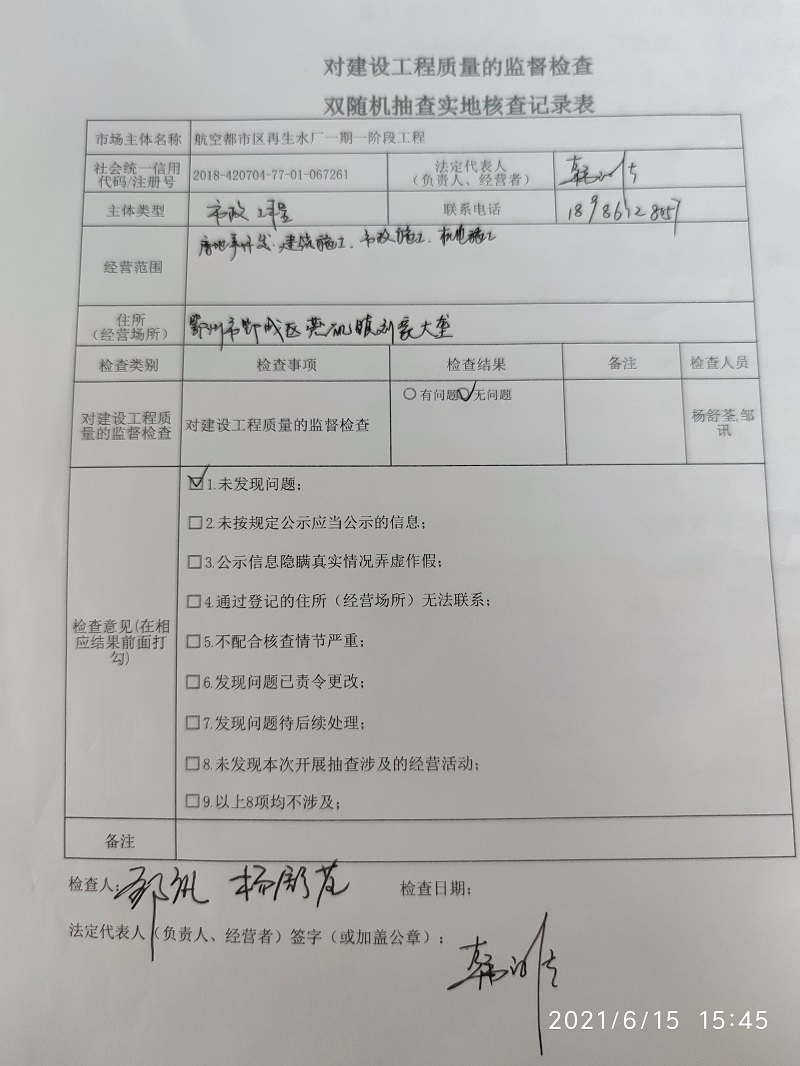 对建设工程质量的监督检查
双随机抽查实地核查记录表
市场主体名称 航空都市区再生水厂一期一阶段工程
社会统一信用代码/注册号 2018-420704-77-01-067261 法定代表人（负责人、经营者）
主体类型 市政工程 联系电话
经营范围 房地产开发、建筑施工、市政施工、机电施工
住所（经营场所） 鄂州市鄂城区燕矶镇刘家大垄
检查类别 检查事项 检查结果 备注 检查人员
对建设工程质量的监督检查 对建设工程质量的监督检查 ○有问题 ○无问题 杨舒荃,邹讯
检查意见(在相应结果前面打勾)
☑1.未发现问题;
□2.未按规定公示应当公示的信息;
□3.公示信息隐瞒真实情况弄虚作假;
□4.通过登记的住所（经营场所）无法联系;
□5.不配合核查情节严重;
□6.发现问题已责令更改;
□7.发现问题待后续处理;
□8.未发现本次开展抽查涉及的经营活动;
□9.以上8项均不涉及;
备注
检查人: 邹讯 杨舒荃 检查日期:
法定代表人（负责人、经营者）签字（或加盖公章）:
2021/6/15 15:45